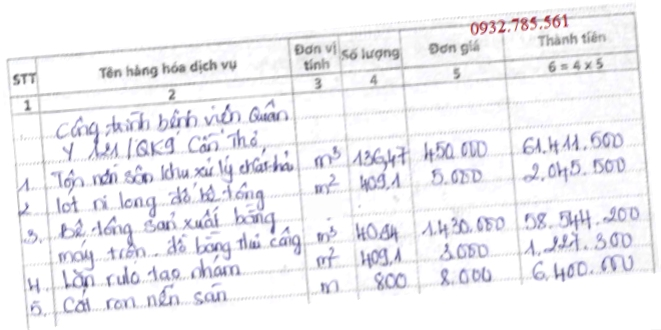 0932.785.561
STT Tên hàng hóa dịch vụ Đơn vị tính Số lượng Đơn giá Thành tiền
1 2 3 4 5 6 = 4 x 5
Công trình bệnh viện Quân
Y 121/QK9 Cần Thơ,
1. Tôn nền sân khu xử lý chất thải m³ 136,47 450.000 61.411.500
2 lót ni long đổ bê tông m² 409,1 5.000 2.045.500
3. Bê tông sản xuất bằng
máy trộn, đổ bằng thủ công m³ 40,94 1.430.000 58.544.200
4. Lăn rulo tạo nhám m² 409,1 3.000 1.227.300
5. Cắt ron nền sân m 800 8.000 6.400.000